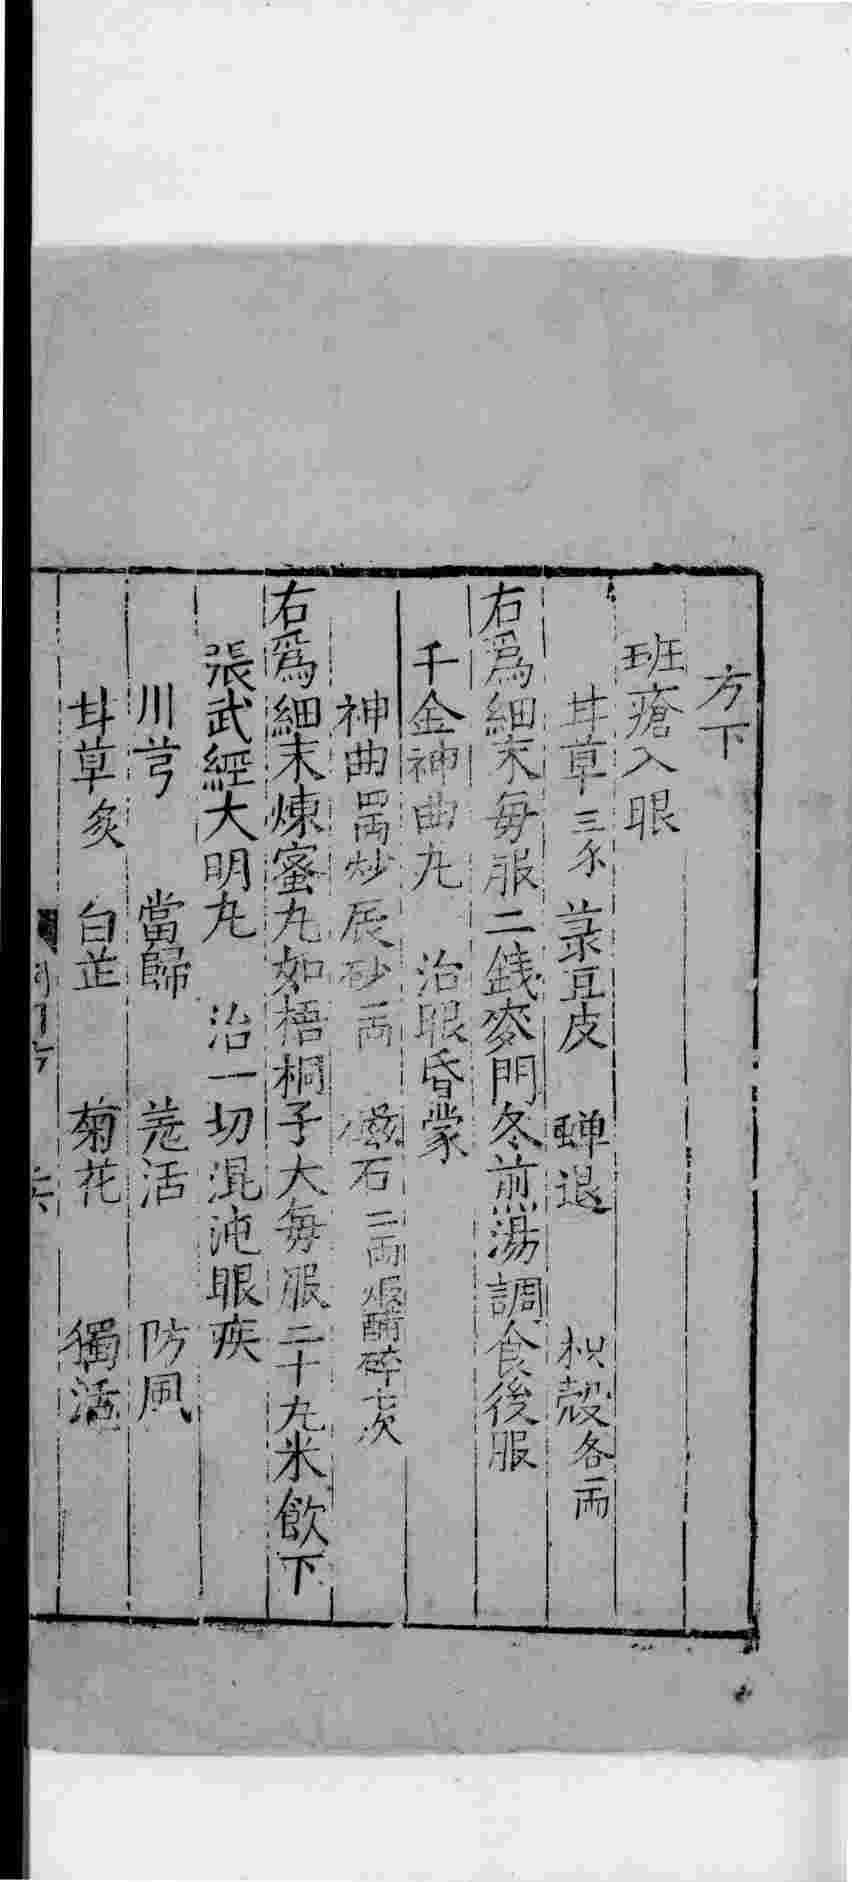 方下
班瘡入眼
甘草三分 菉豆皮 蟬退 枳殼各一兩
右爲細末毎服二錢麥門冬煎湯調食後服
千金神曲九 治眼昏蒙
神曲四兩炒辰砂一兩 磁石二兩煆醋碎七次
右爲細末煉蜜九如梧桐子大毎服二十九米飲下
張武經大明九 治一切混沌眼疾
川芎 當歸 羗活 防風
甘草炙 白芷 菊花 獨活